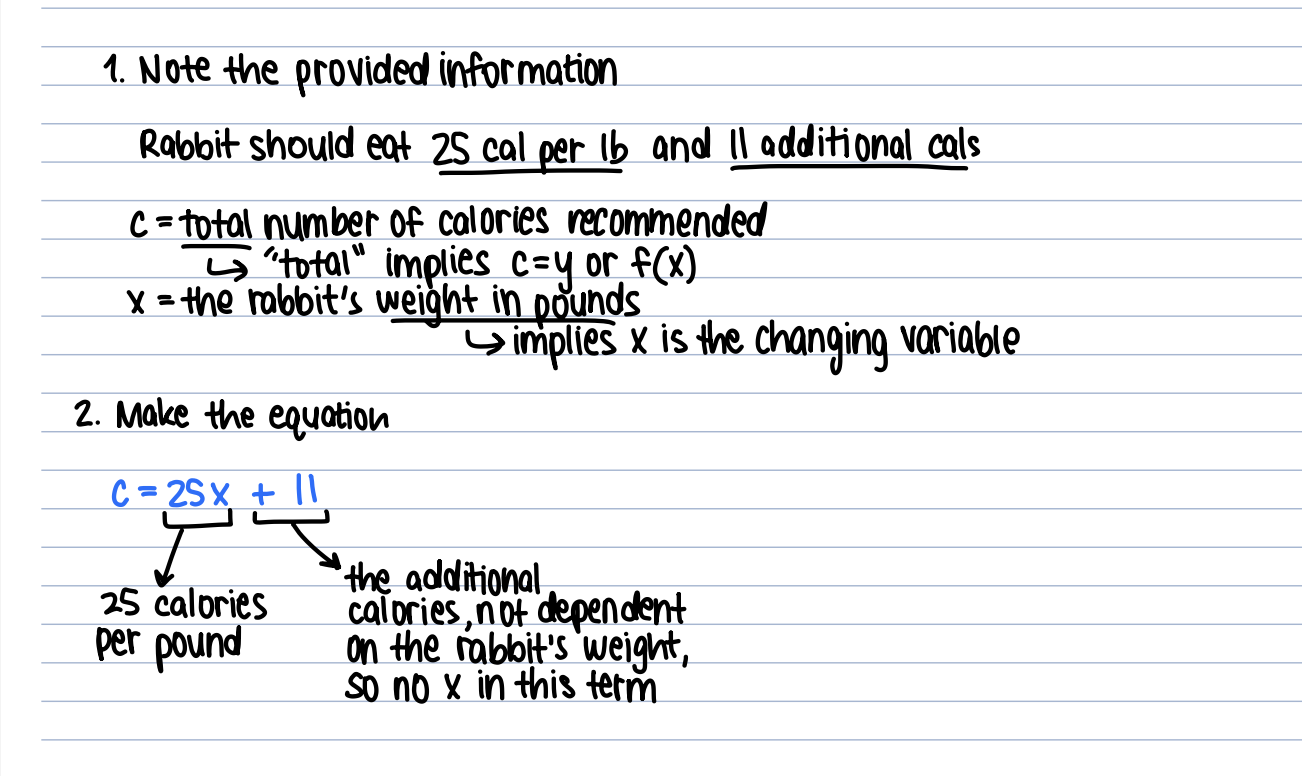 1. Note the provided information
Rabbit should eat 25 cal per lb and 11 additional cals
c = total number of calories recommended
↳ "total" implies c=y or f(x)
x = the rabbit's weight in pounds
↳ implies x is the changing variable
2. Make the equation
c = 25x + 11
25 calories
per pound
the additional
calories, not dependent
on the rabbit's weight,
so no x in this term